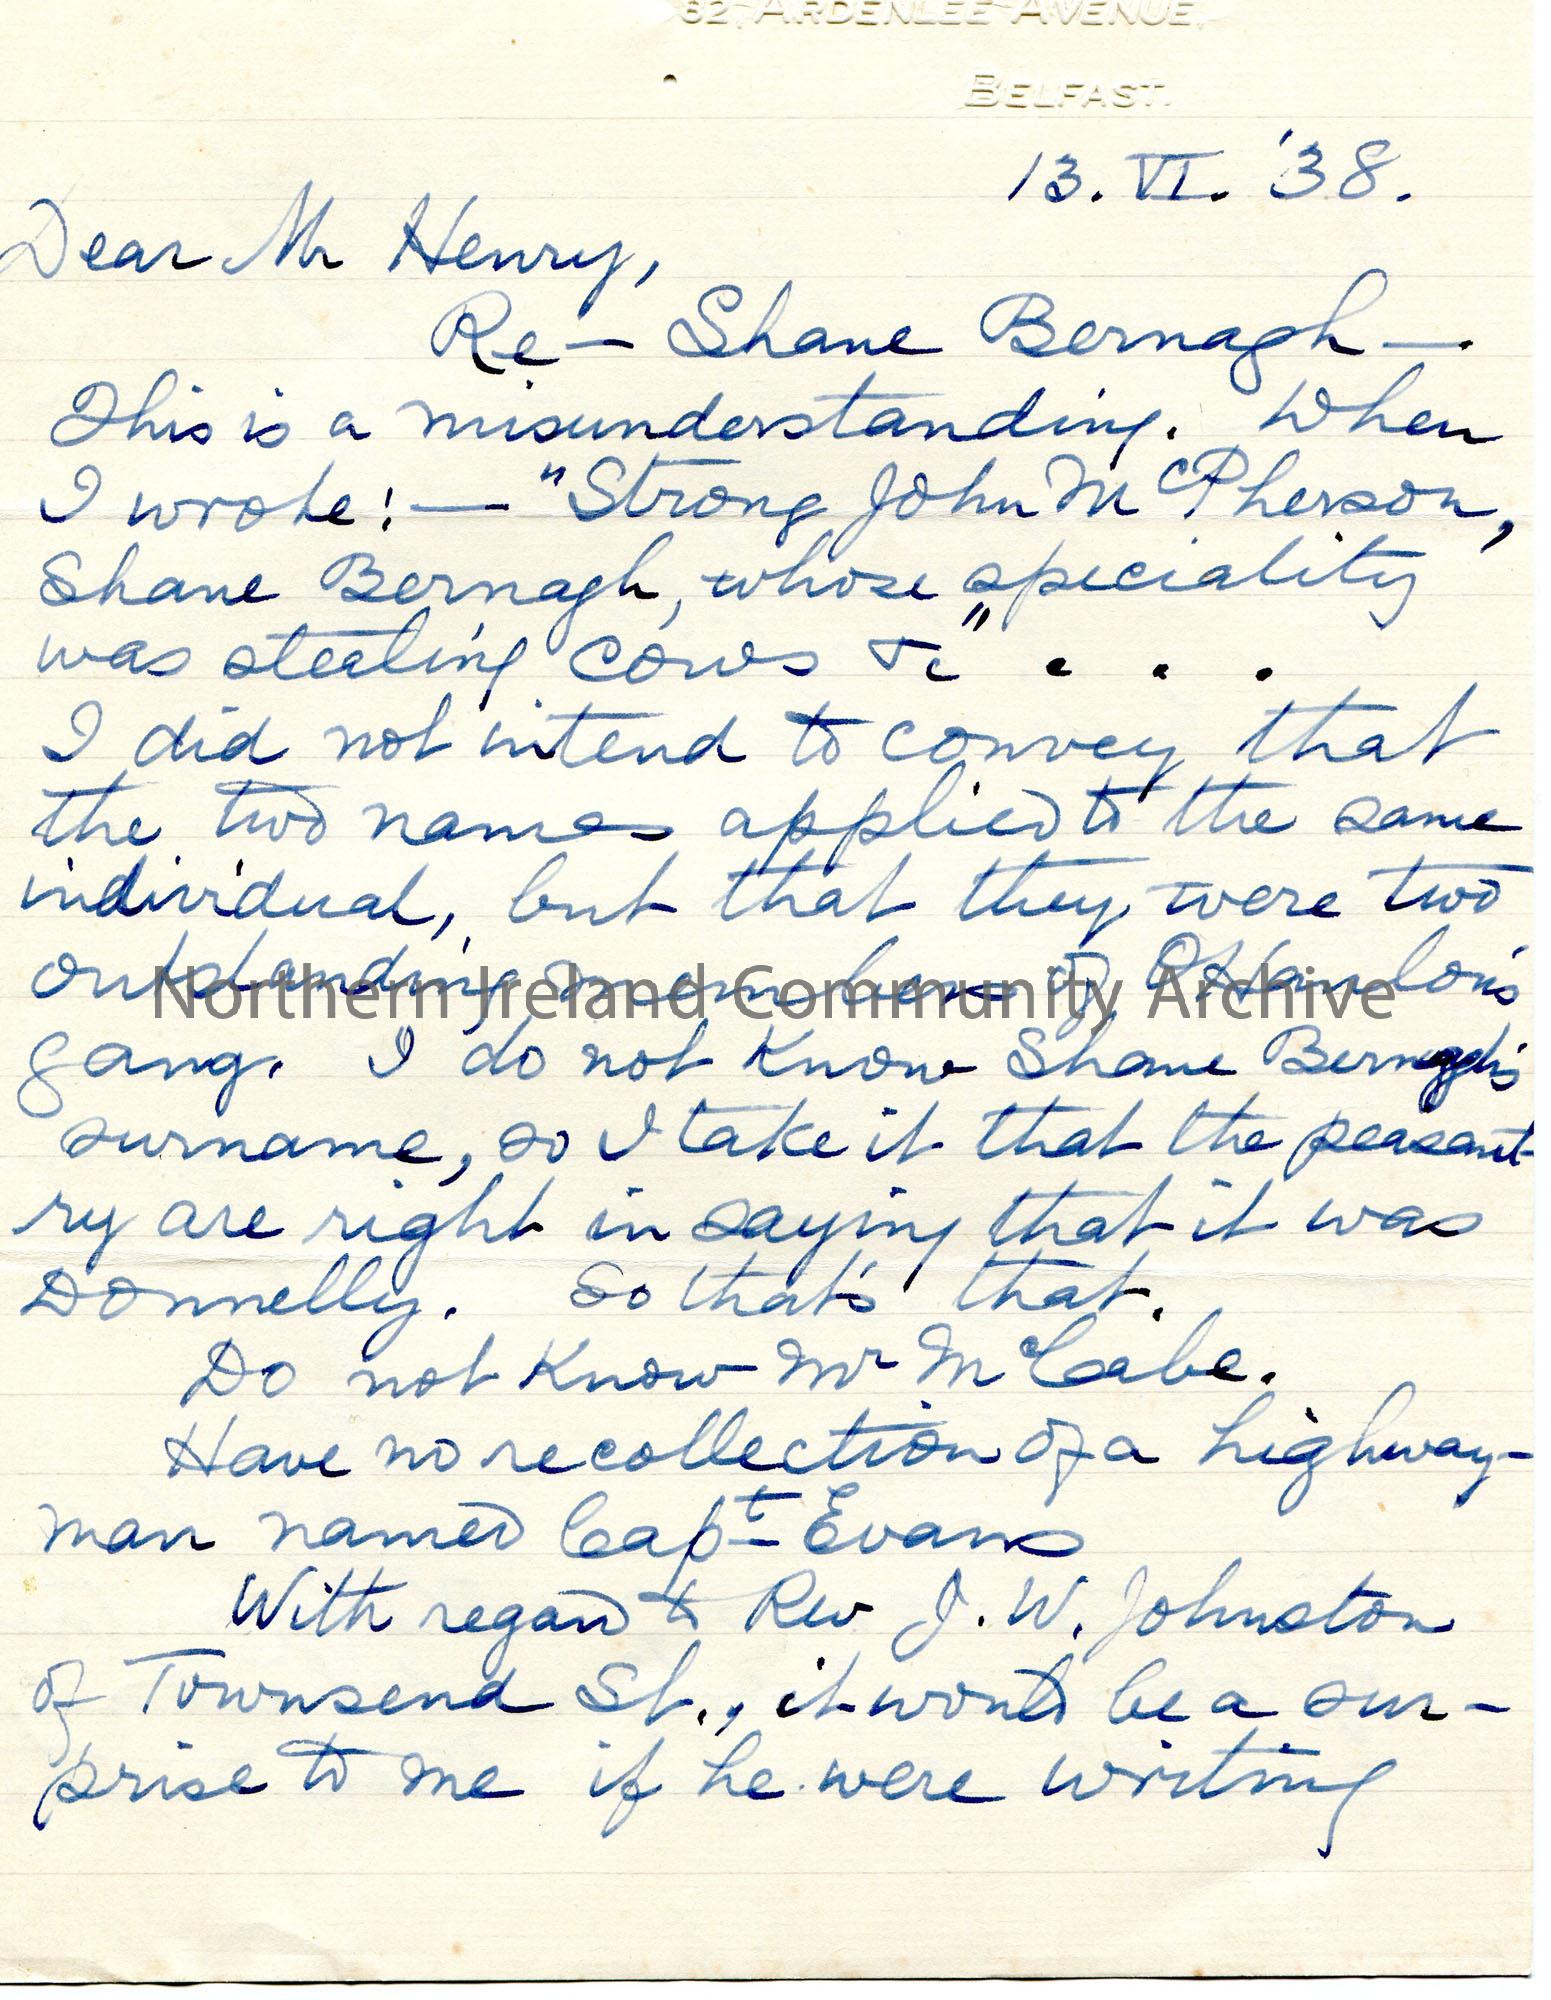 62, ARDENLEE AVENUE,
BELFAST.
13. VI. '38.
Dear Mr Henry,
Re — Shane Bernagh —.
This is a misunderstanding. When
I wrote! — "Strong John McPherson,
Shane Bernagh, whose speciality
was stealing cows &c" . . .
I did not intend to convey that
the two names applied to the same
individual, but that they were two
outstanding members of O'Hanlon's
Northern Ireland Community Archive
gang. I do not know Shane Bernagh's
surname, so I take it that the peasant-
ry are right in saying that it was
Donnelly. So that's that.
Do not know Mr McCabe.
Have no recollection of a highway-
man named Capt Evans
With regard to Rev J. W. Johnston
of Townsend St., it would be a sur-
prise to me if he were writing